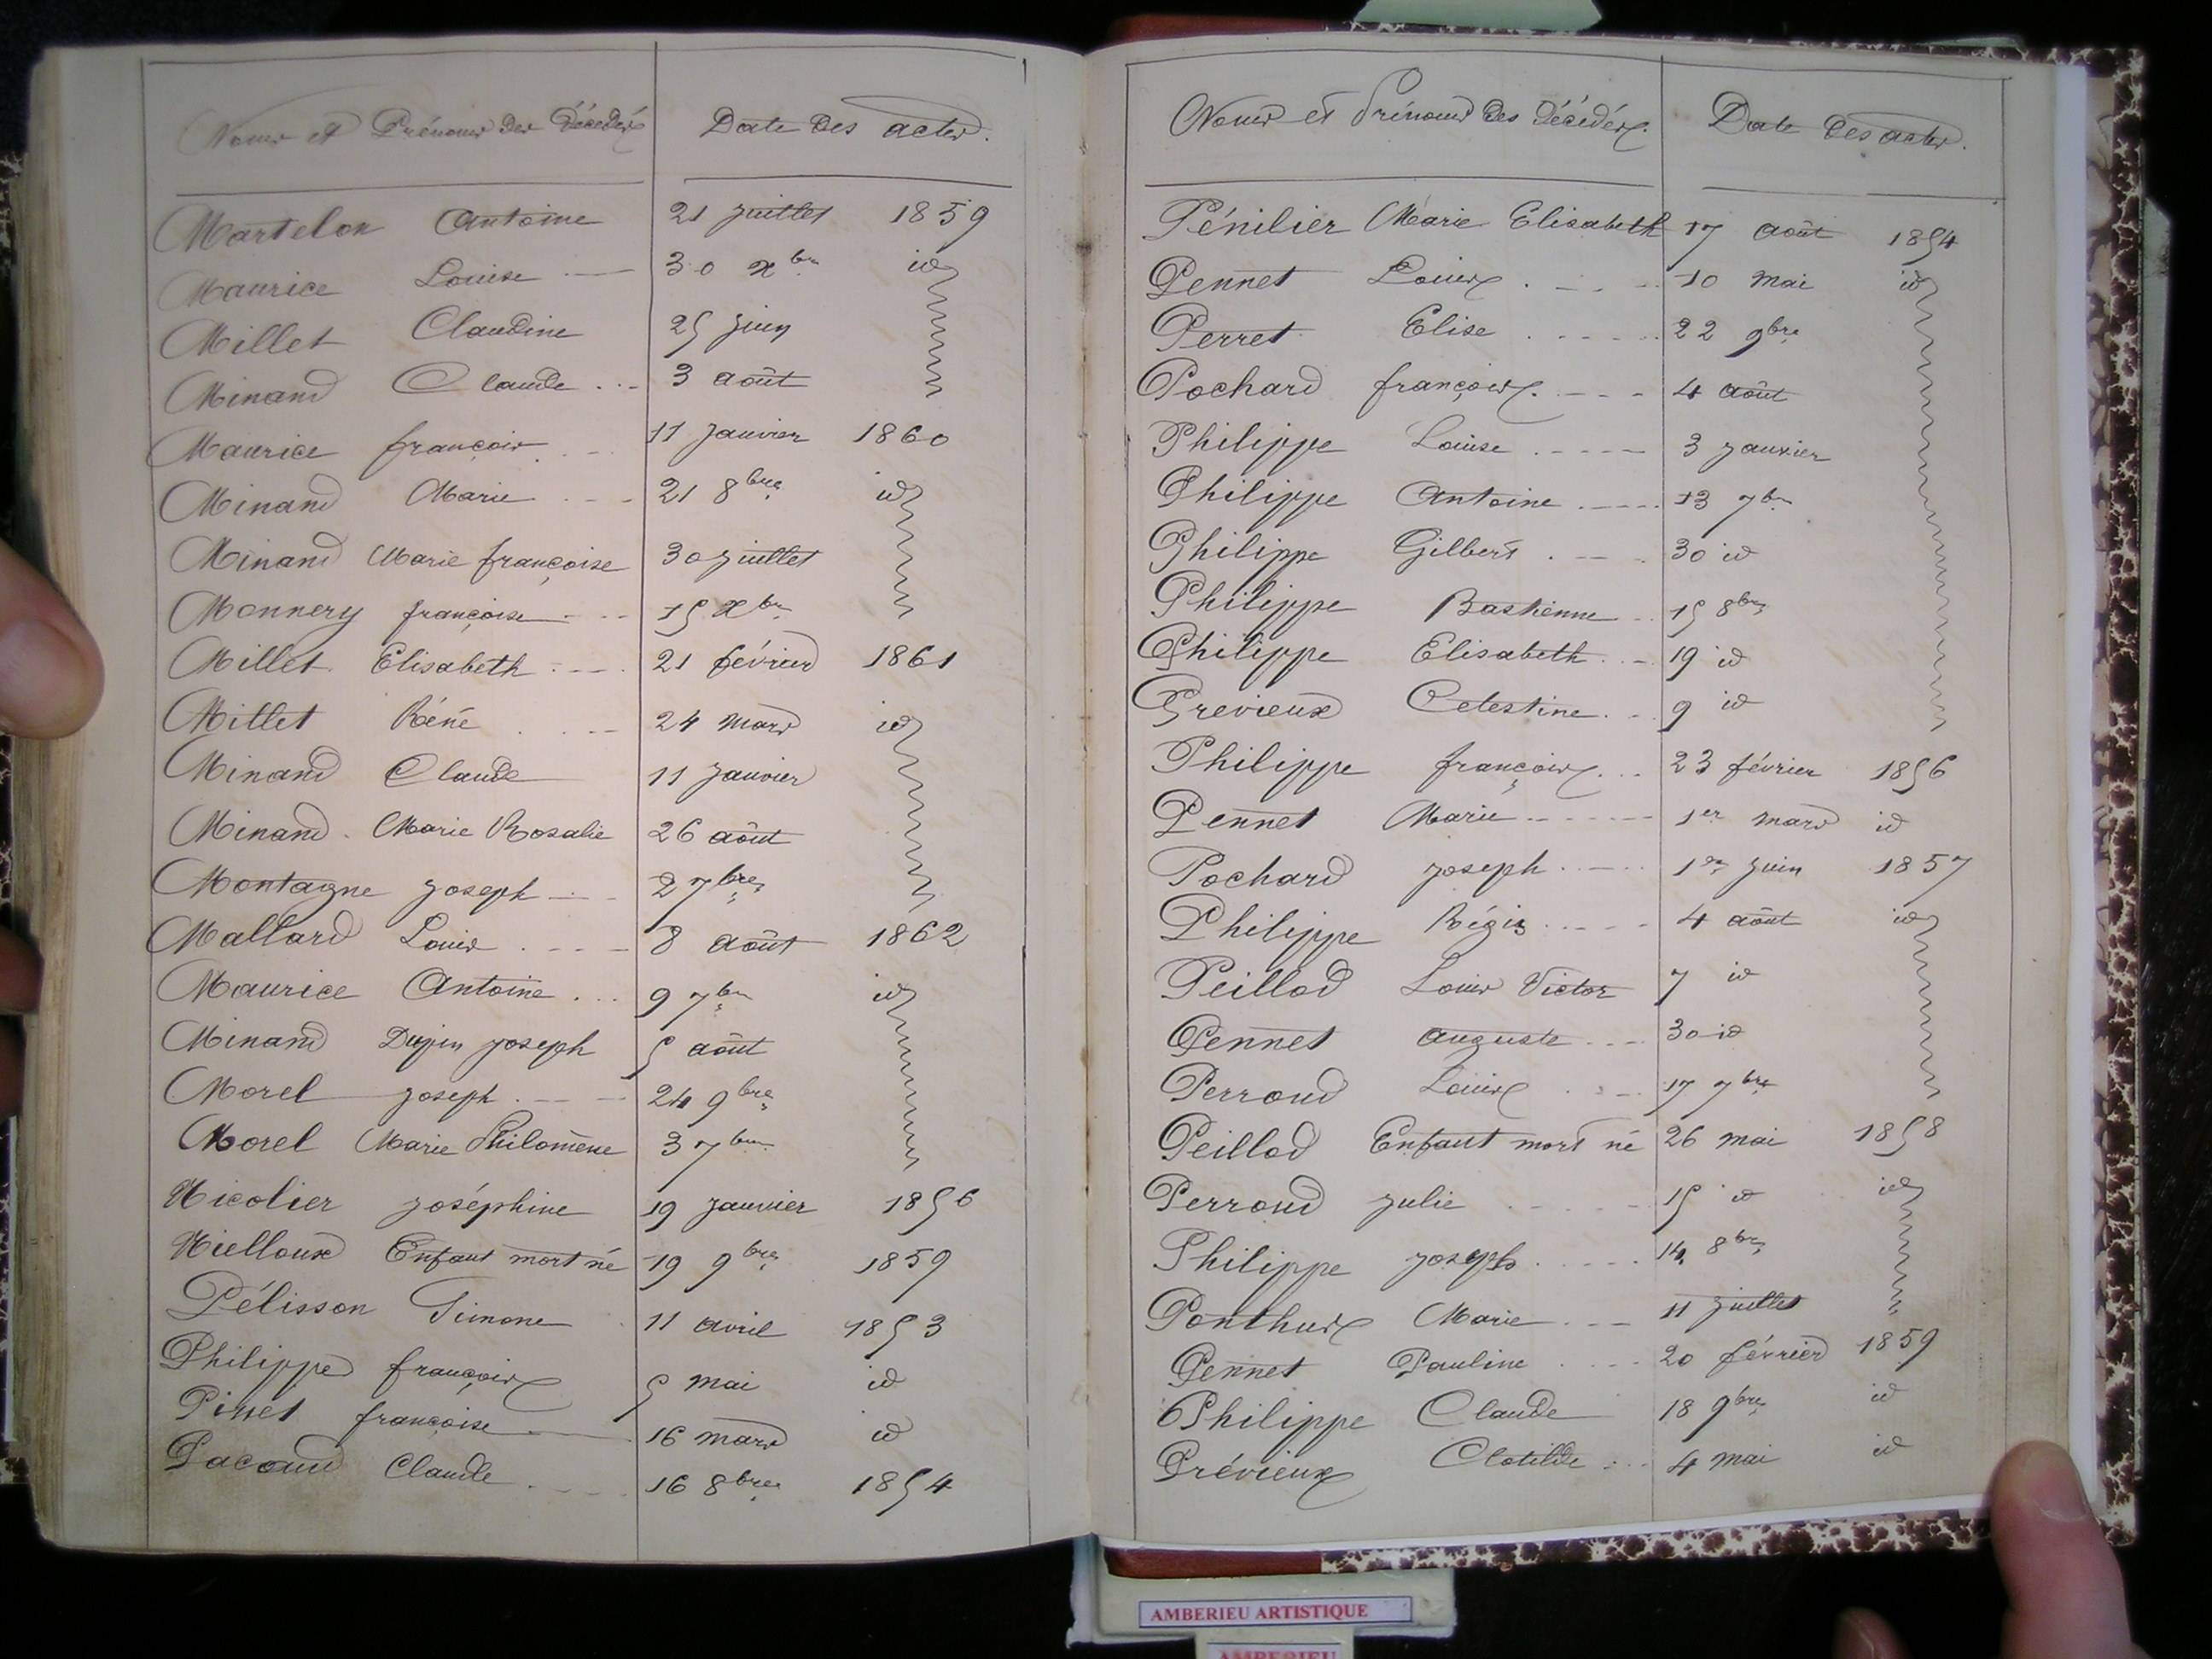 Noms et Prénoms des Décédés Date des actes.
Martelon Antoine 21 juillet 1859
Maurice Louise 30 Xbre id
Millet Claudine 25 juin
Minand Claude 3 août
Maurice françois 11 janvier 1860
Minand Marie 21 8bre id
Minand Marie françoise 30 juillet
Monnery françoise 15 Xbre
Millet Elisabeth 21 février 1861
Millet Réné 24 mars id
Minand Claude 11 janvier
Minand Marie Rosalie 26 août
Montagne joseph 2 7bre
Mallard Louis 8 août 1862
Maurice Antoine 9 7bre id
Minand Dupin joseph 5 août
Morel joseph 24 9bre
Morel Marie Philomène 3 7bre
Nicolier joséphine 19 janvier 1856
Nielloux Enfant mort né 19 9bre 1859
Pélisson Simone 11 avril 1853
Philippe françois 5 mai id
Pinet françoise 16 mars id
Pacoud Claude 16 8bre 1854
Noms et Prénoms des Décédés. Date des actes.
Pénilier Marie Elisabeth 17 août 1854
Pennet Louis 10 mai id
Perret Elise 22 9bre
Pochard françois 4 août
Philippe Louise 3 janvier
Philippe Antoine 13 7bre
Philippe Gilbert 30 id
Philippe Basthènne 15 8bre
Philippe Elisabeth 19 id
Previeux Celestine 9 id
Philippe françois 23 février 1856
Pennet Marie 1er mars id
Pochard joseph 1er juin 1857
Philippe Régis 4 août id
Peillod Louis Victor 7 id
Pennet auguste 30 id
Perroud Louis 17 7bre
Peillod Enfant mort né 26 mai 1858
Perroud julie 15 id id
Philippe joseph 14 8bre
Ponthus Marie 11 juillet
Pennet Pauline 20 février 1859
Philippe Claude 18 9bre id
Prévieux Clotilde 4 mai id
AMBERIEU ARTISTIQUE
AMBERIEU